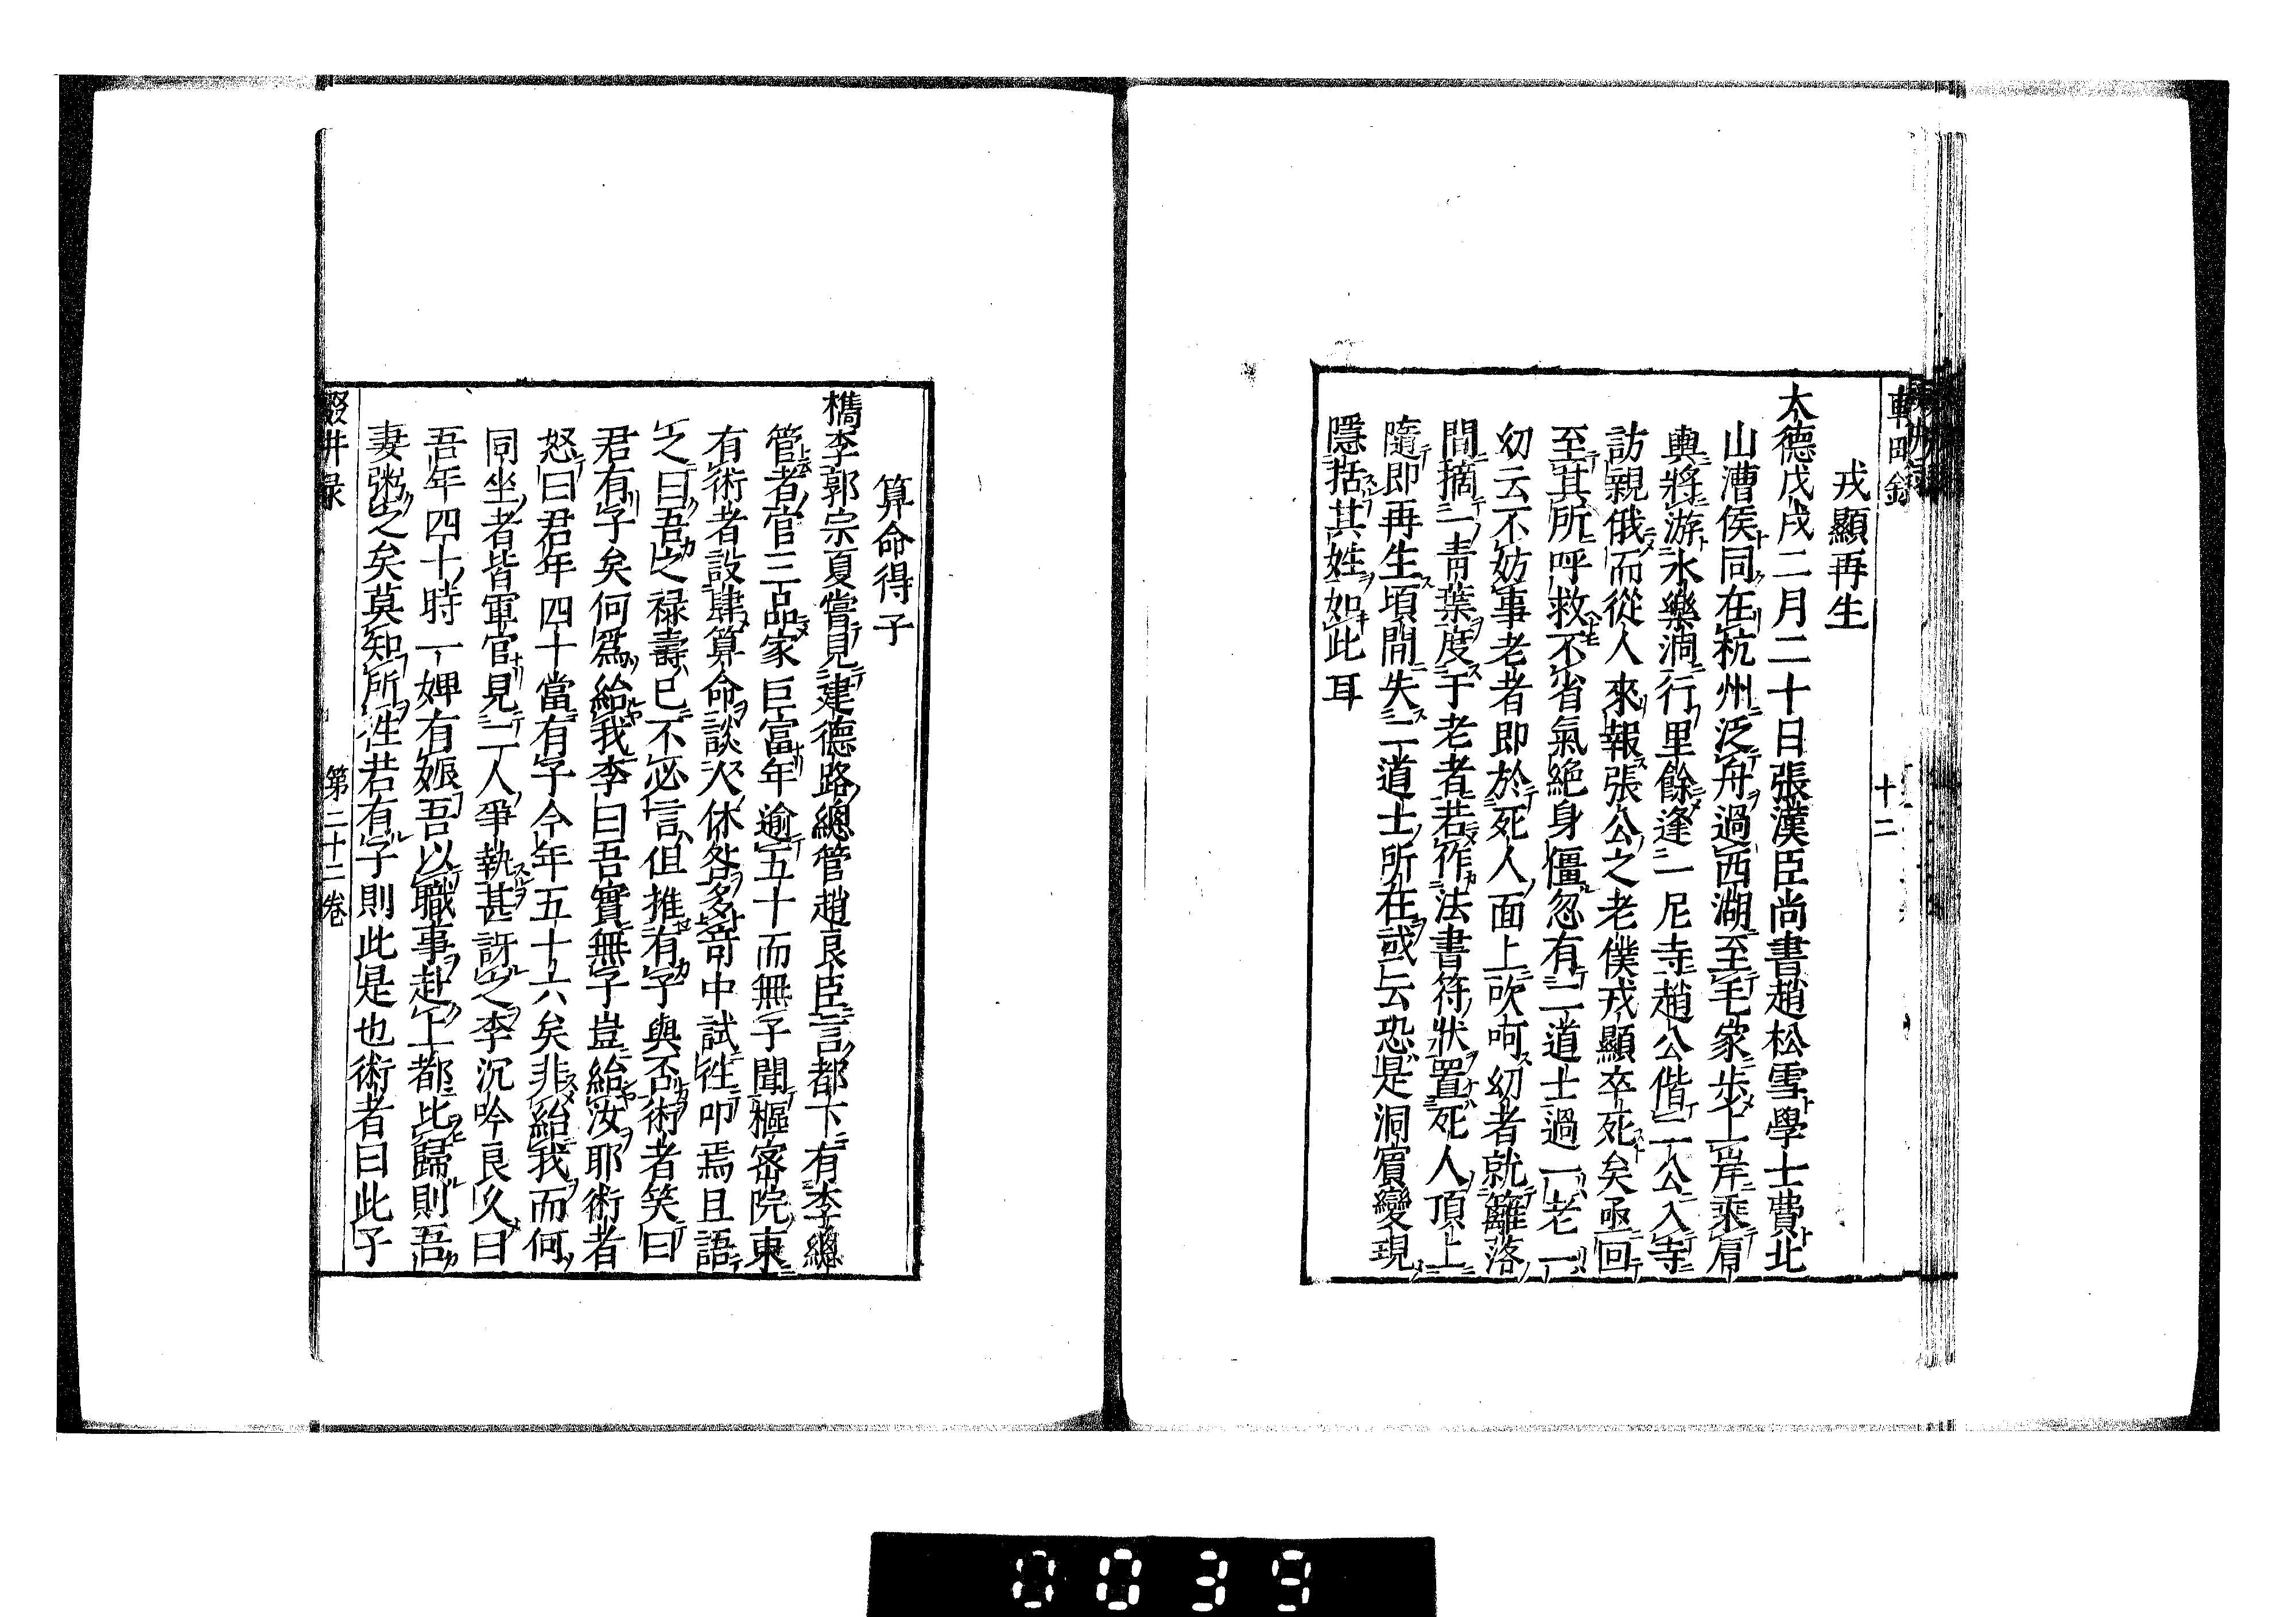 十二
戎顯再生
太德戊戌二月二十日張漢臣尚書趙松雪學士費北
山漕侯同在杭州泛舟過西湖至毛家步上岸乘肩
輿將游水樂洞行里餘逢一尼寺趙公偕二公入寺
訪親俄而從人來報張公之老僕戎顯卒死矣亟回
至其所呼救不省氣絕身僵忽有二道士過一老一
幼云不妨事老者即於死人面上吹呵幼者就籬落
間摘一青葉度于老者若作法書符狀置死人頂上
隨即再生頃間失二道士所在或云恐是洞賓變現
隱括其姓如此耳
算命得子
檇李郭宗夏嘗見建德路總管趙良臣言都下有李總
管者官三品家巨富年逾五十而無子聞樞密院東
有術者設肆算命談人休咎多奇中試往叩焉且語
之曰吾之祿壽已不必言但推有子與否術者笑曰
君有子矣何爲紿我李曰吾實無子豈紿汝耶術者
怒曰君年四十當有子今年五十六矣非紿我而何
同坐者皆軍官見二人爭執甚訝之李沉吟良久曰
吾年四十時一婢有娠吾以職事赴上都比歸則吾
妻粥之矣莫知所往若有子則此是也術者曰此子
第二十二卷